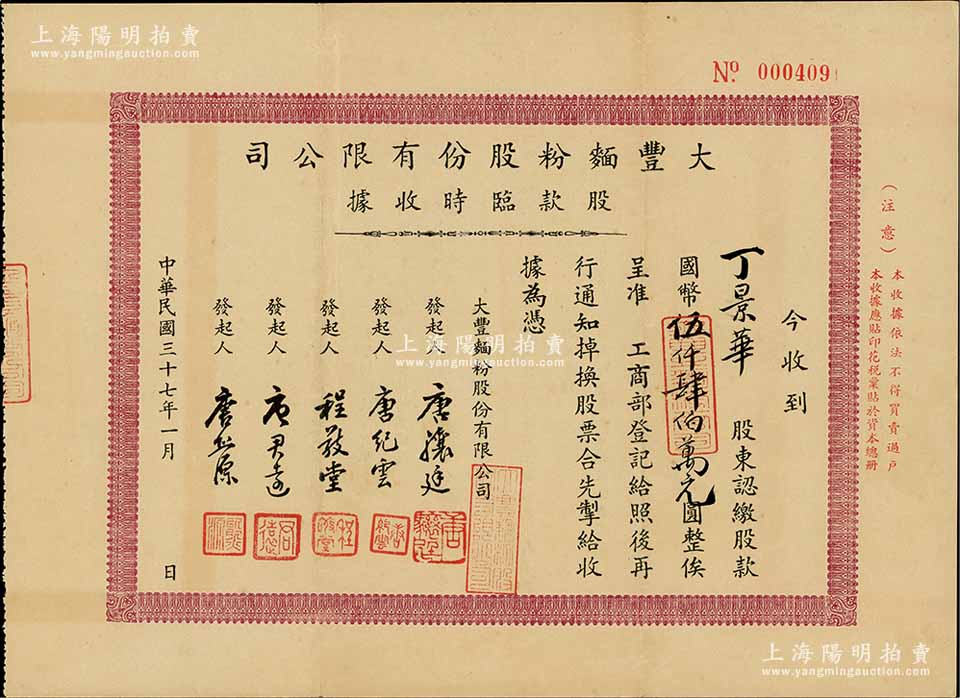 上海陽明拍賣
www.yangmingauction.com
Nº 000409
大豐麵粉股份有限公司
股款臨時收據
今收到
丁景華 股東認繳股款
國幣伍仟肆佰萬元圓整俟
呈准 工商部登記給照後再
行通知掉換股票合先掣給收
據為憑
大豐麵粉股份有限公司
發起人 唐驤廷
發起人 唐紀雲
發起人 程敬堂
發起人 唐君遠
發起人 唐熊源
中華民國三十七年一月 日
(注意)
本收據依法不得買賣過戶
本收據應貼印花稅彙貼於資本總冊
上海陽明拍賣
www.yangmingauction.com
上海陽明拍賣
www.yangmingauction.com